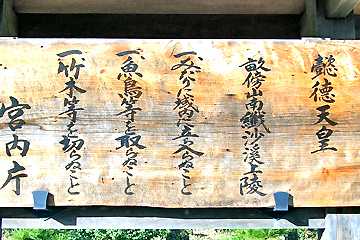 懿徳天皇
畝傍山南纖沙溪上陵
一、みだりに域内に立ち入らぬこと
一、魚鳥等を取らぬこと
一、竹木等を切らぬこと
宮内庁